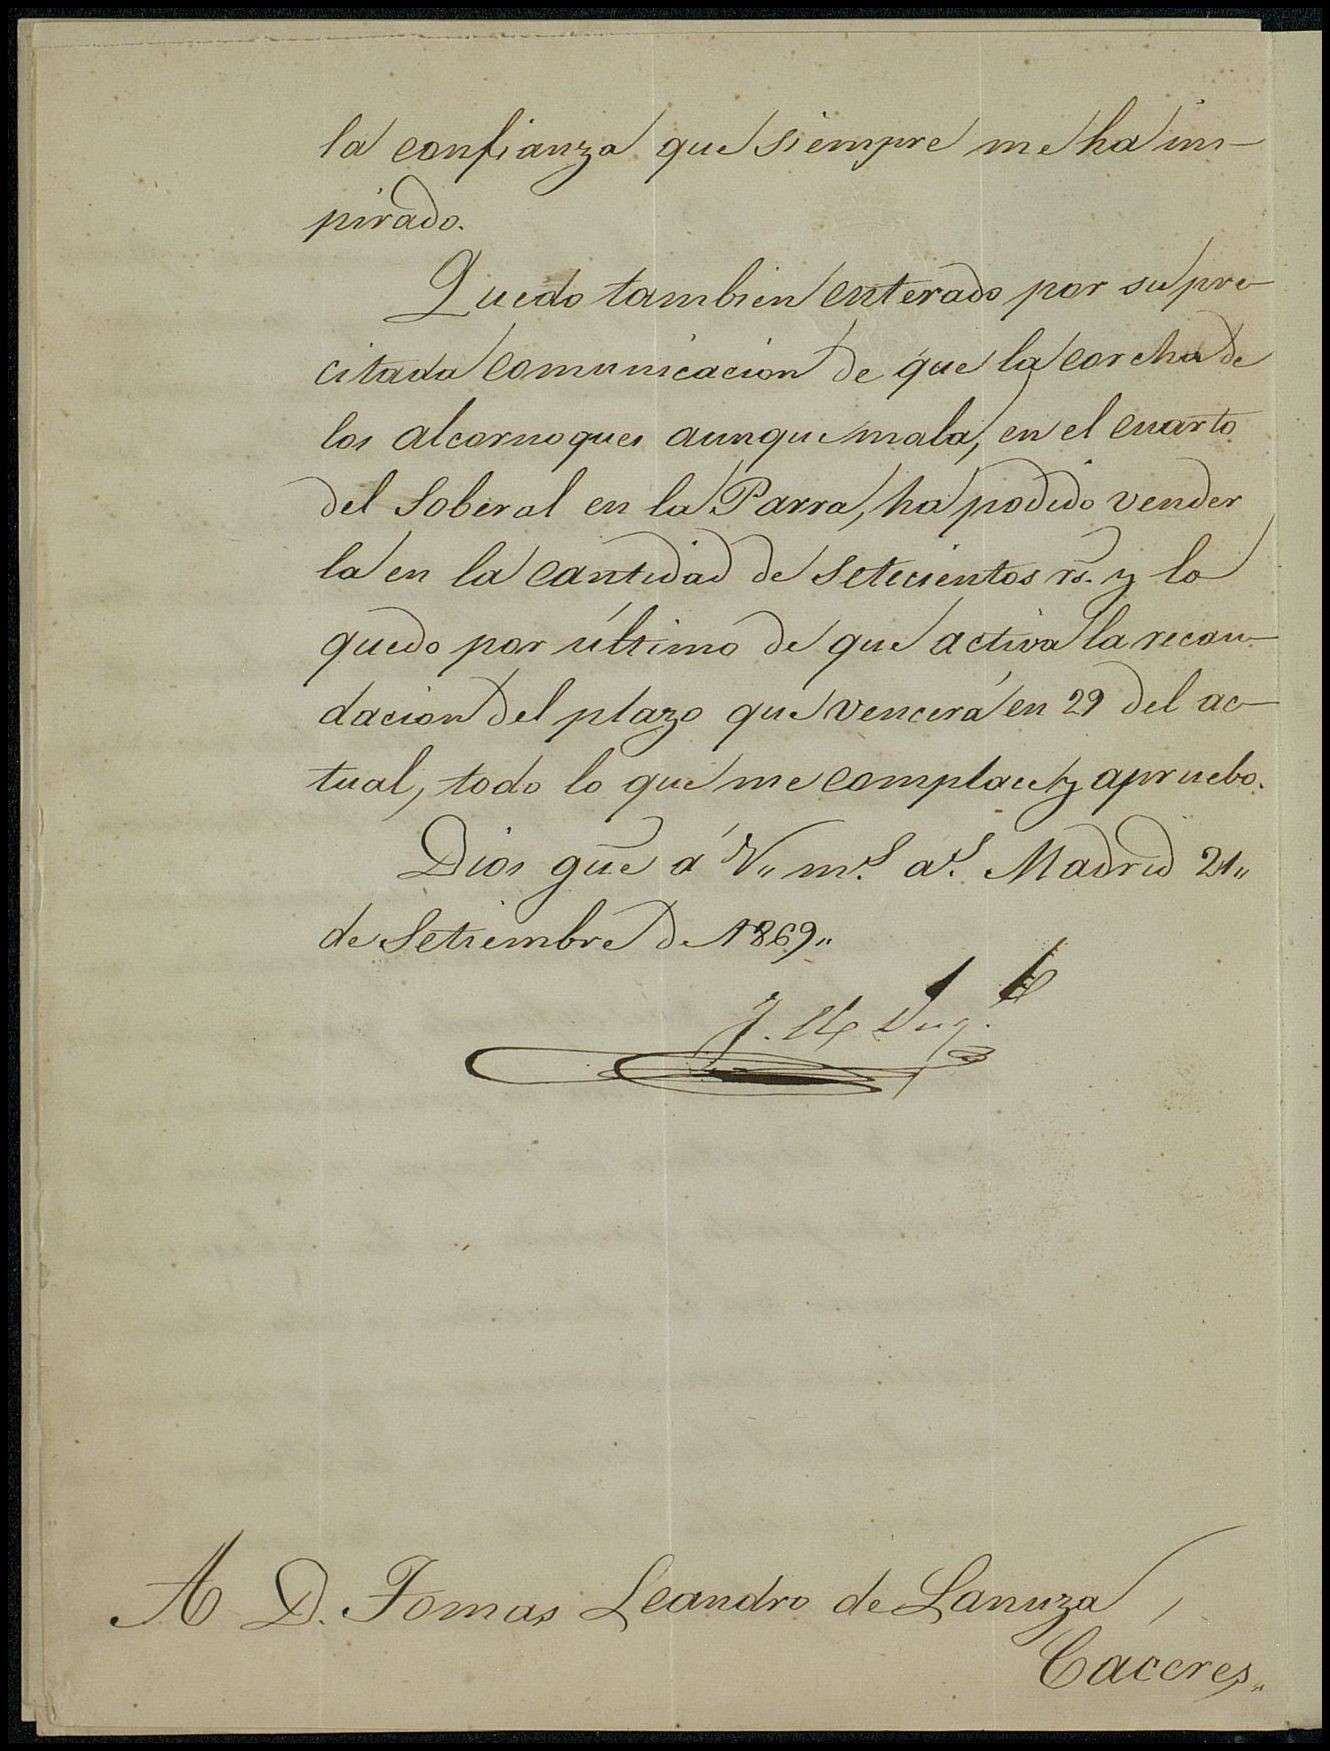 la confianza que siempre me ha ins-
pirado.
Quedo tambien enterado por su pre-
citada comunicacion de que la corcha de
los alcornoques aunque mala, en el cuarto
del Soberal en la Parra, ha podido vender
la en la cantidad de setecientos rs. y lo
quedo por último de que activa la recau-
dacion del plazo que vencerá en 29 del ac-
tual, todo lo que me complace y apruebo.
Dios gue á V. ms. as. Madrid 21
de Setiembre de 1869.
A D. Tomas Leandro de Lanuza,
Cáceres.